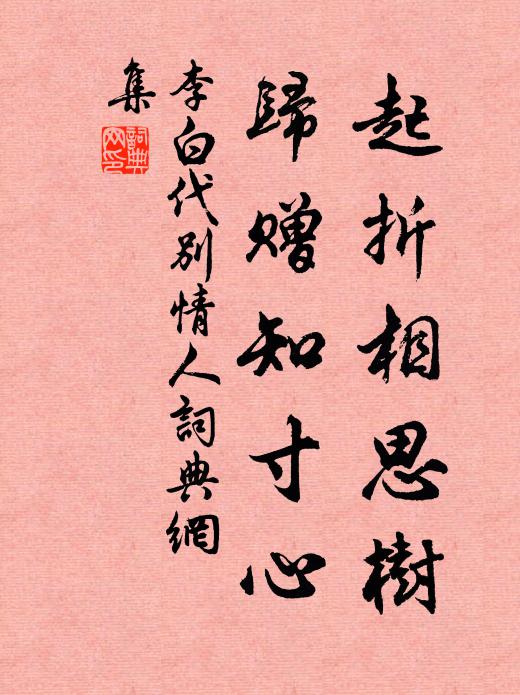 起折相思樹
歸赠知寸心
李白代别情人詞典網
集
詞典
网印